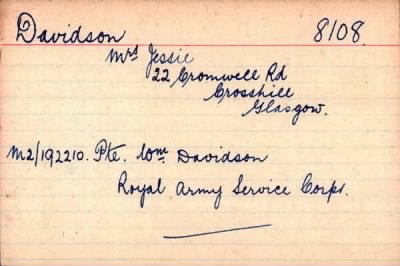 Davidson 8108.
Mrs Jessie
22 Cromwell Rd
Crosshill
Glasgow.
M2/192210. Pte. Wm Davidson
Royal Army Service Corps.